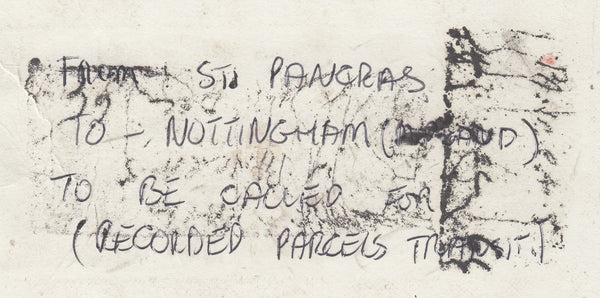 FROM ST. PANCRAS
TO - NOTTINGHAM (MIDLAND)
TO BE CALLED FOR
(RECORDED PARCELS TRANSIT.)